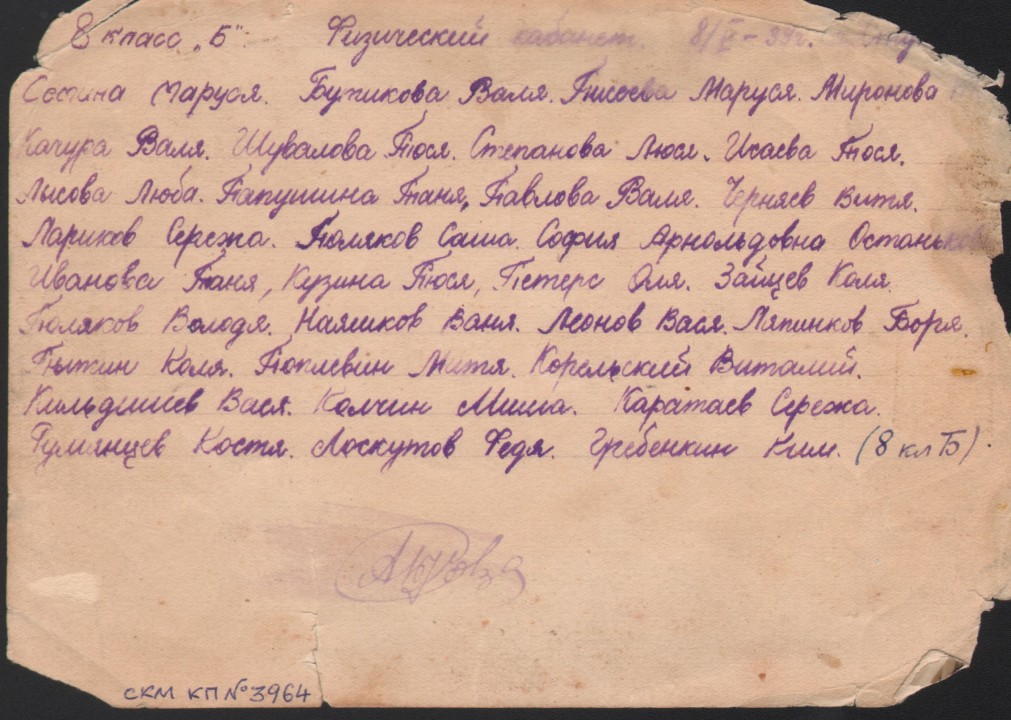 8 класс „Б" Физический кабинет. 8/V-39г.
Маруся. Бутикова Валя. Маруся. Миронова
Качура Валя. Шувалова Тюся. Степанова Люся. Исаева Тося.
Лысова Люба. Папушина Таня, Павлова Валя. Черняев Витя.
Лариков Сережа. Поляков Саша. София Арнольдовна
Иванова Таня, Кузина Тюся, Петерс Оля. Зайцев Коля.
Поляков Володя. Ваня. Леонов Вася. Боря.
Пыжин Коля. Митя. Корельский Виталий.
Вася. Колчин Миша. Каратаев Сережа.
Румянцев Костя. Лоскутов Федя. Гребенкин Ким. (8 кл Б).
СКМ КП № 3964